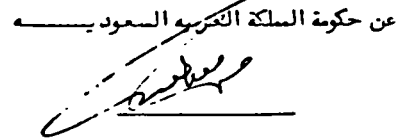 عن حكومة المملكة العربيه السعوديـــــه